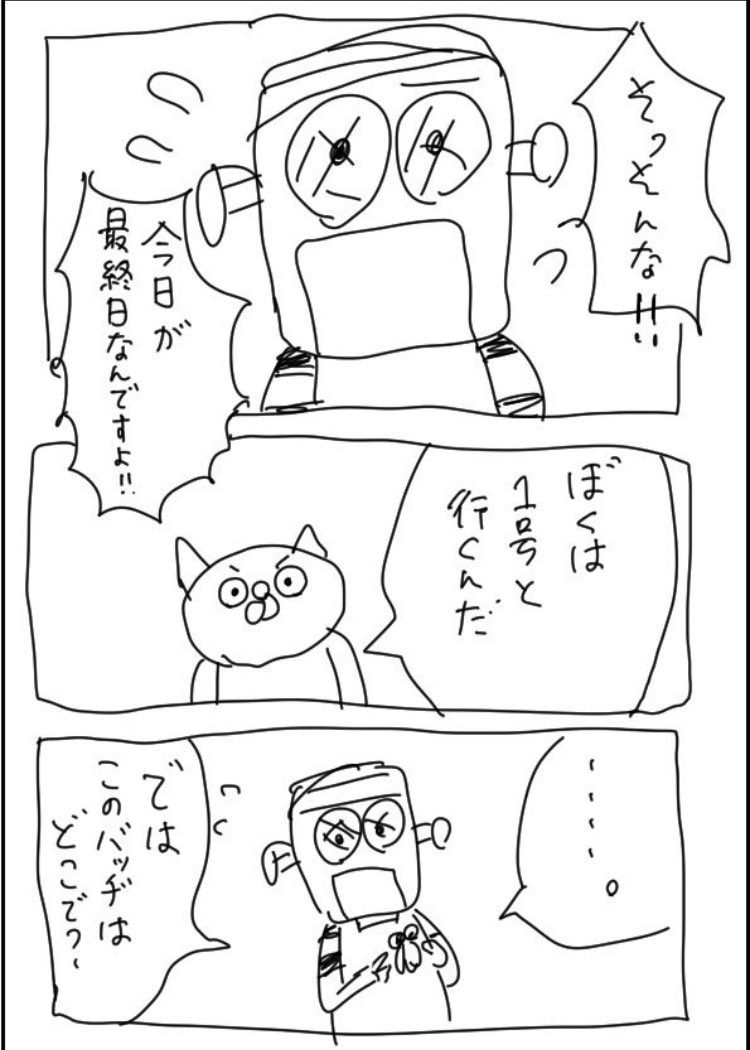 そっそんな!!
今日が
最終日なんですよ!!
ぼくは
1号と
行くんだ
・・・・。
では
このバッヂは
どこでっ